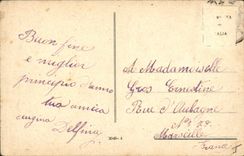 Buon fine
e miglior
principio d'anno
tua amica
cugina
Delfina
A Mademoiselle
Gros Ernestine
Rue d'Aubagne
Nº 29
Marseille
France